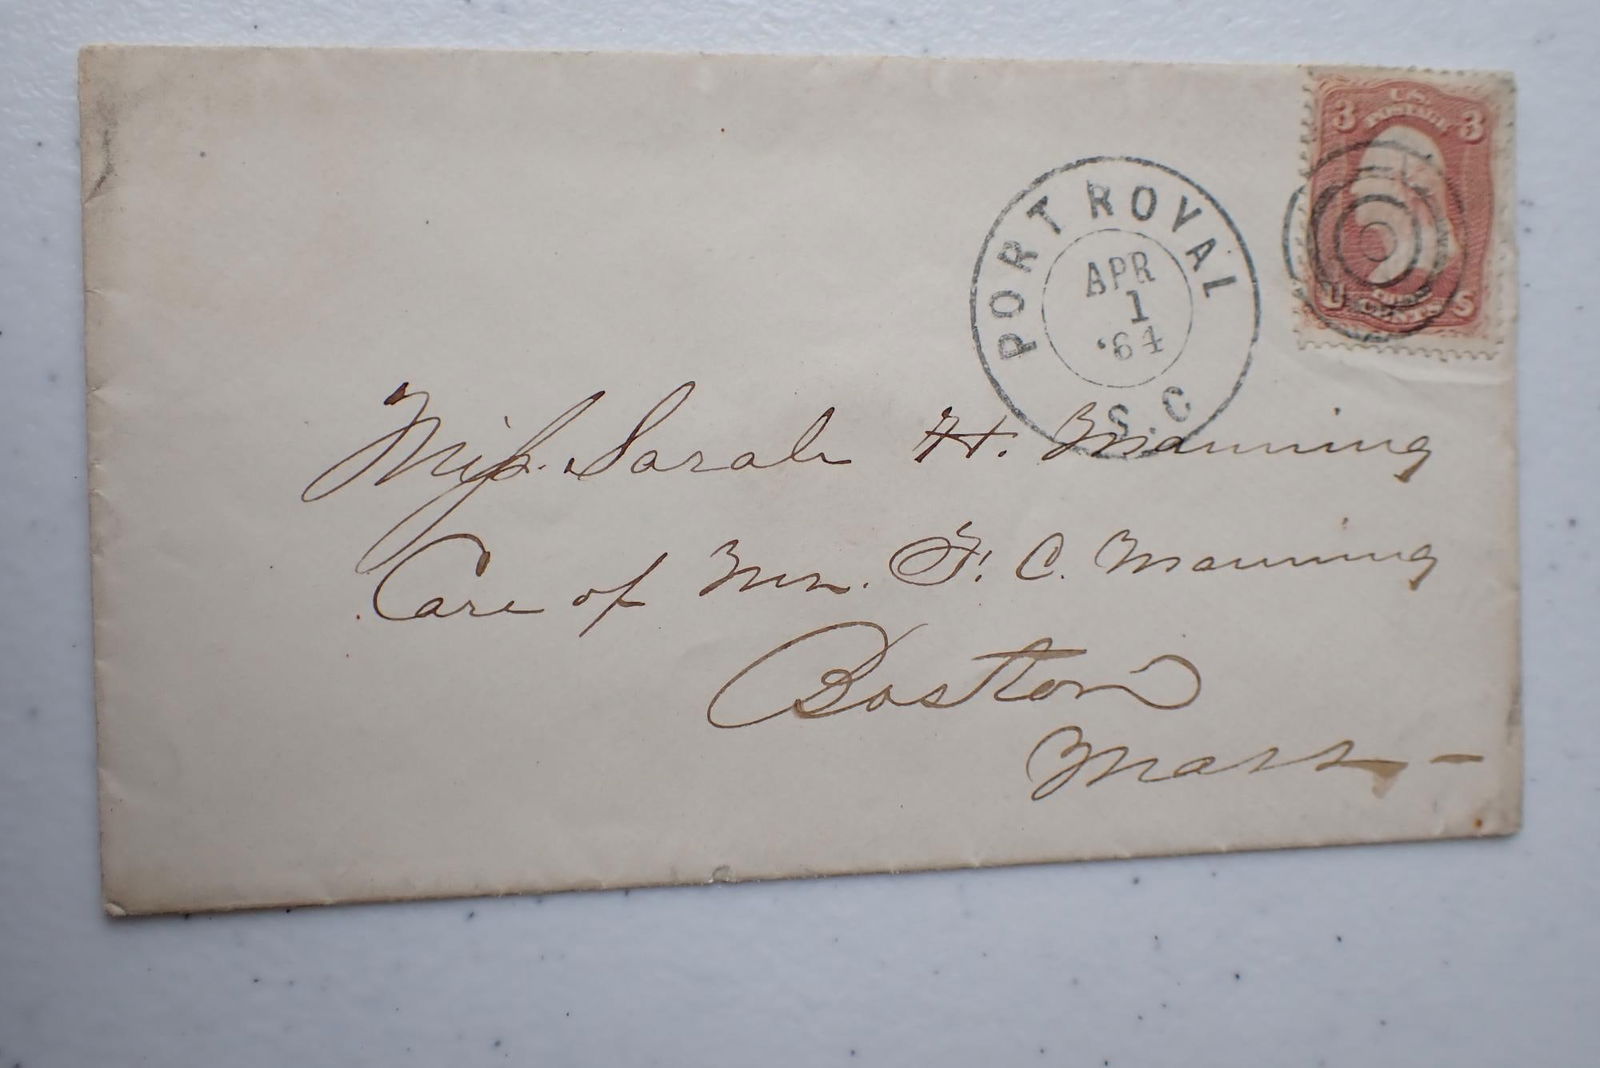 3 U.S. POSTAGE 3
U THREE CENTS S
PORT ROYAL
APR
1
'64
S.C
Miss. Sarah H. Manning
Care of Mrs. F. C. Manning
Boston
Mass -